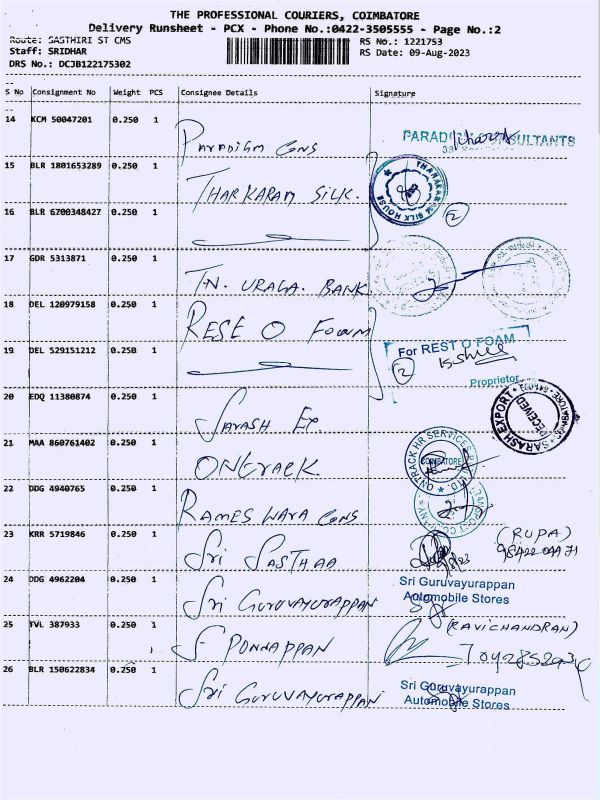 THE PROFESSIONAL COURIERS, COIMBATORE
Delivery Runsheet - PCX - Phone No.:0422-3505555 - Page No.:2
Route: SASTHIRI ST CMS
RS No.: 1221753
Staff: SRIDHAR
RS Date: 09-Aug-2023
DRS No.: DCJB122175302
S No Consignment No Weight PCS Consignee Details Signature
14 KCM 50047201 0.250 1 Paradigm Cons
PARAD SULTANTS
15 BLR 1801653289 0.250 1 THARKARAM SILK.
THARAKARAM SILK HOUSE
16 BLR 6700348427 0.250 1
2
17 GDR 5313871 0.250 1 T.N. URAGA. BANK
18 DEL 120979158 0.250 1 REST O Foam
For REST O FOAM
19 DEL 529151212 0.250 1
2
Proprietor
20 EDQ 11380874 0.250 1 Sarash Ex.
SARASH EXPORT
RECEIVED
21 MAA 860761402 0.250 1 ONTRACK
ONTRACK HR SERVICES P LTD.
COIMBATORE
22 DDG 4940765 0.250 1 RAMESWARA CONS
23 KRR 5719846 0.250 1 Sri SASTHAA
(RUPA)
24 DDG 4962204 0.250 1 Sri GURUVAYURAPPAN
Sri Guruvayurappan
Automobile Stores
25 TVL 387933 0.250 1 S PONNAPPAN
(RAVICHANDRAN)
26 BLR 150622834 0.250 1 Sri GURUVAYURAPPAN
Sri Guruvayurappan
Automobile Stores